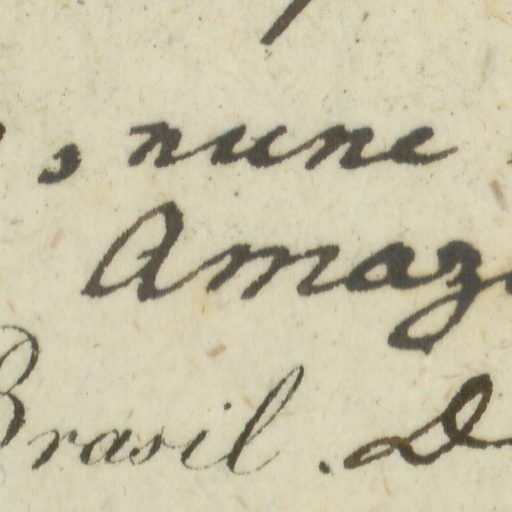 , nunc
Amaz
Brasil. D